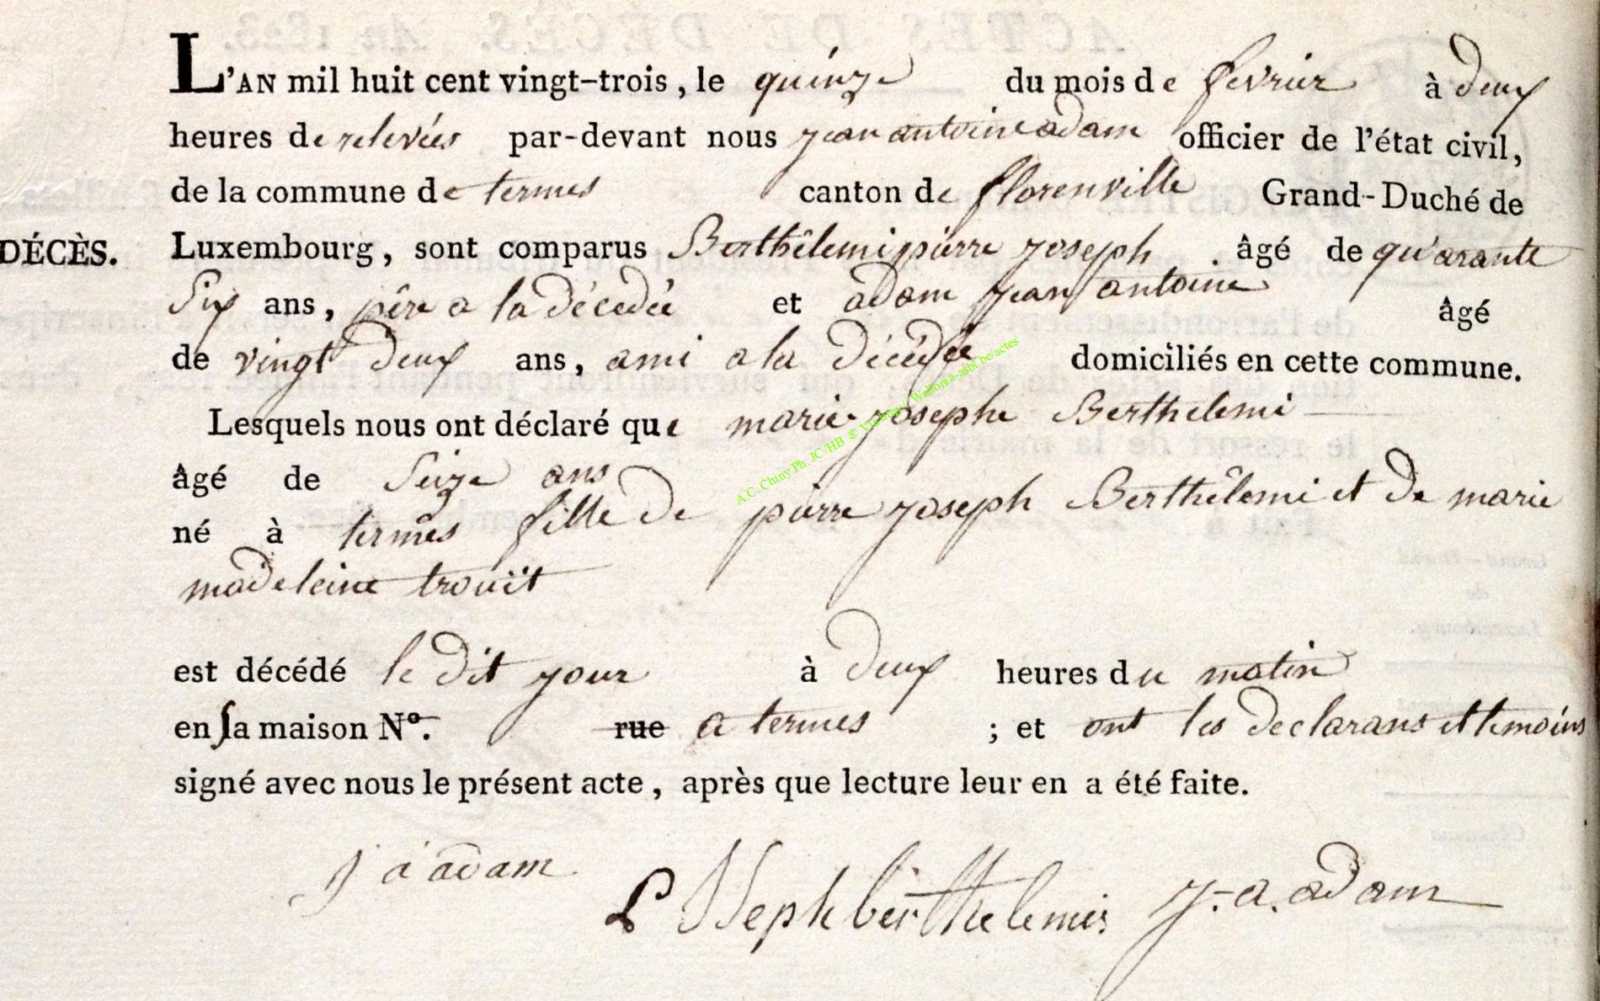 L'AN mil huit cent vingt-trois, le quinze du mois de fevrier à deux
heures de relevées par-devant nous jean antoine adam officier de l'état civil,
de la commune de termes canton de florenville Grand-Duché de
DÉCÈS. Luxembourg, sont comparus Berthêlemi pierre joseph âgé de quarante
six ans, pêre a la décedée et adam jean antoine âgé
de vingt deux ans, ami a la décédée domiciliés en cette commune.
Lesquels nous ont déclaré que marie josephe Berthelemi
âgé de seize ans
né à termes fille de pierre joseph Berthêlemi et de marie
madeleine
est décédé le dit jour à deux heures du matin
en sa maison N°. rue a termes ; et ont les declarans et temoins
signé avec nous le présent acte, après que lecture leur en a été faite.
j a adam
berthelemi j. a. adam